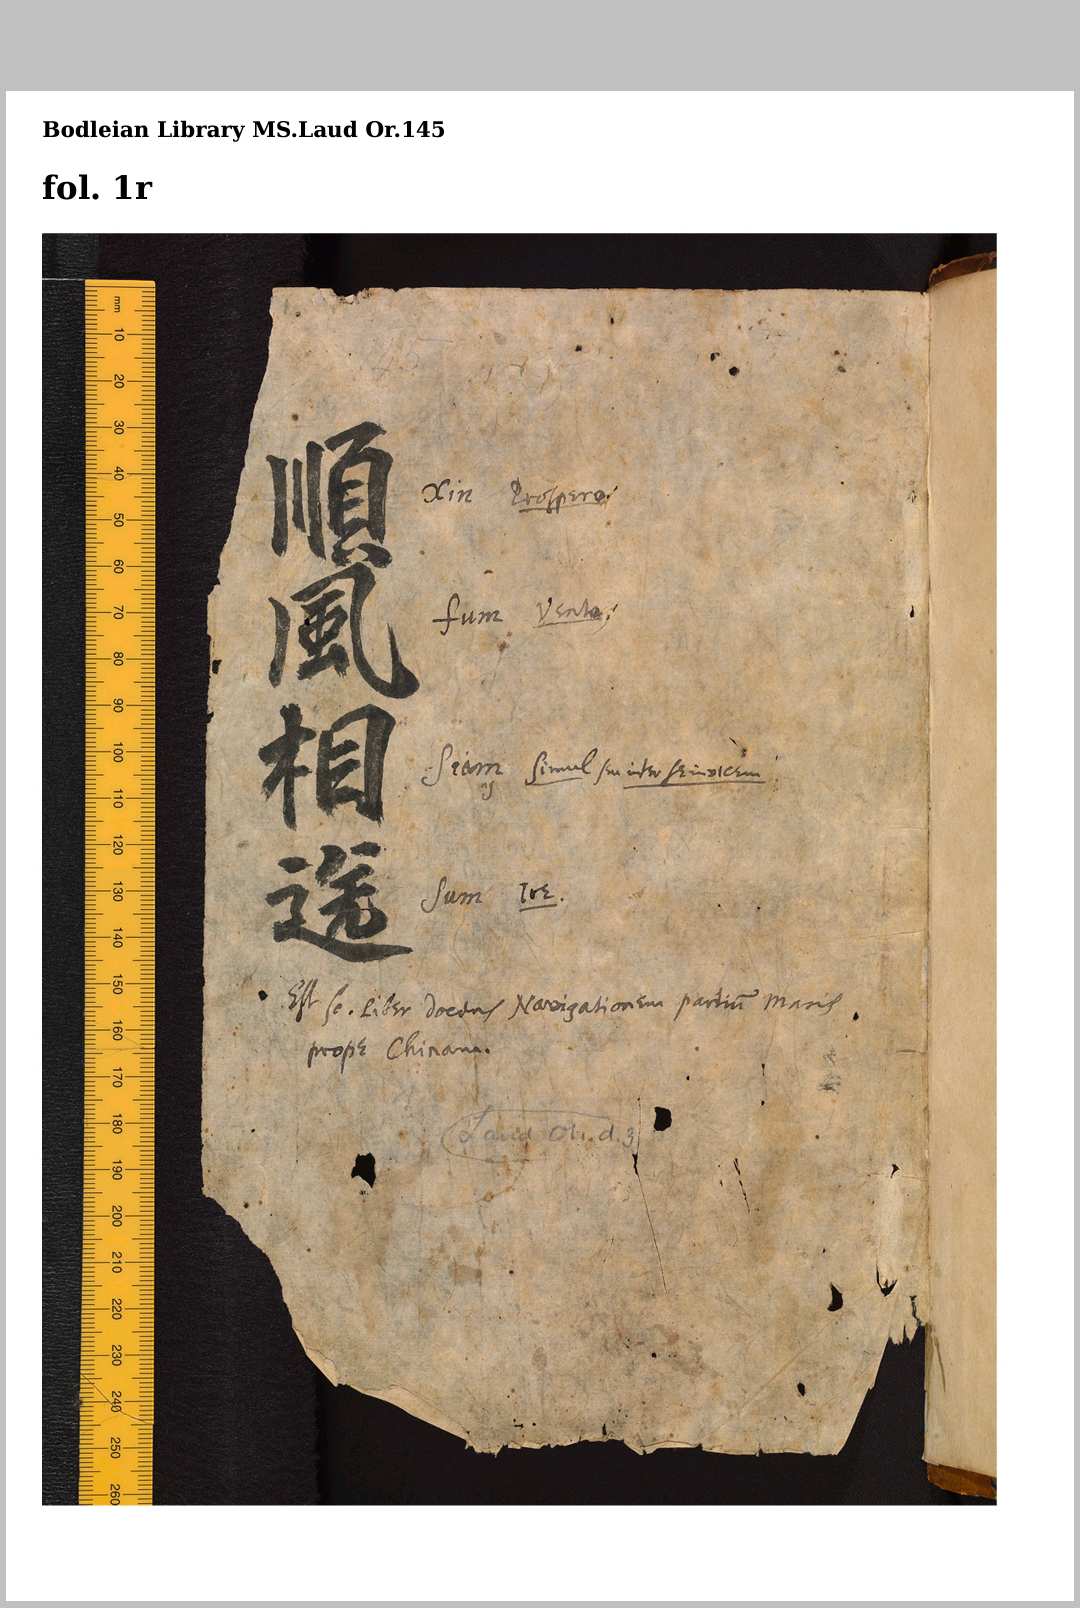 Bodleian Library MS.Laud Or.145
fol. 1r
順風相送
Xin Prospero;
fum Vento;
Siam Simul seu inter se invicem
Sum Ire.
Est sc. Liber docens Navigationem partiū Maris
prope Chinam.
Laud Or. d. 3
mm 10 20 30 40 50 60 70 80 90 100 110 120 130 140 150 160 170 180 190 200 210 220 230 240 250 260